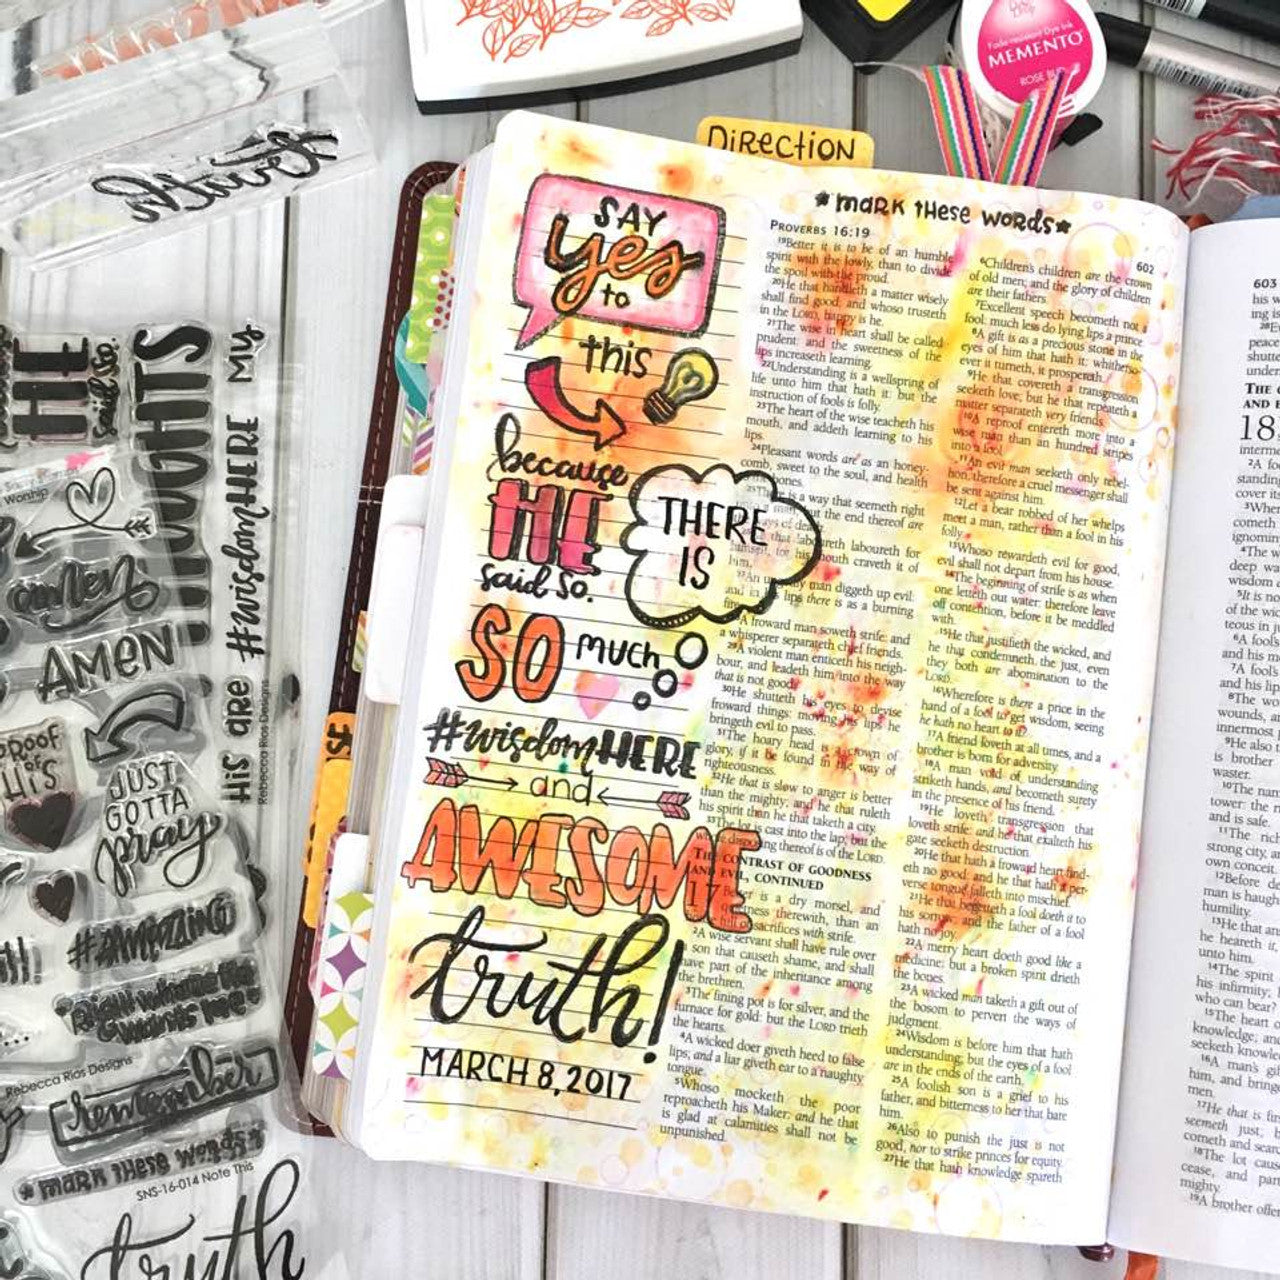 Fade resistant Dye Ink
MEMENTO
ROSE BUD
Direction
*MARK THESE WORDS*
SAY
yes
to
this
because
HE
said so.
THERE
IS
SO much
#wisdomHERE
and
AWESOME
truth!
MARCH 8, 2017
PROVERBS 16:19
602
19Better it is to be of an humble
spirit with the lowly, than to divide
the spoil with the proud.
20He that handleth a matter wisely
shall find good: and whoso trusteth
in the LORD, happy is he.
21The wise in heart shall be called
prudent: and the sweetness of the
lips increaseth learning.
22Understanding is a wellspring of
life unto him that hath it: but the
instruction of fools is folly.
23The heart of the wise teacheth his
mouth, and addeth learning to his
lips.
24Pleasant words are as an honey-
comb, sweet to the soul, and health
bones.
25There is a way that seemeth right
man, but the end thereof are
ways of death
that laboureth laboureth for
himself; for his mouth craveth it of
him.
27An ungodly man diggeth up evil:
and in his lips there is as a burning
fire.
28A froward man soweth strife: and
a whisperer separateth chief friends.
29A violent man enticeth his neigh-
bour, and leadeth him into the way
that is not good.
30He shutteth his eyes to devise
froward things: moving his lips he
bringeth evil to pass.
31The hoary head is a crown of
glory, if it be found in the way of
righteousness.
32He that is slow to anger is better
than the mighty; and he that ruleth
his spirit than he that taketh a city.
33The lot is cast into the lap; but the
whole disposing thereof is of the LORD.
THE CONTRAST OF GOODNESS
AND EVIL, CONTINUED
17 Better is a dry morsel, and
quietness therewith, than an
house full of sacrifices with strife.
2A wise servant shall have rule over
a son that causeth shame, and shall
have part of the inheritance among
the brethren.
3The fining pot is for silver, and the
furnace for gold: but the LORD trieth
the hearts.
4A wicked doer giveth heed to false
lips; and a liar giveth ear to a naughty
tongue.
5Whoso mocketh the poor
reproacheth his Maker: and he that
is glad at calamities shall not be
unpunished.
6Children's children are the crown
of old men; and the glory of children
are their fathers.
7Excellent speech becometh not a
fool: much less do lying lips a prince.
8A gift is as a precious stone in the
eyes of him that hath it: whitherso-
ever it turneth, it prospereth.
9He that covereth a transgression
seeketh love; but he that repeateth a
matter separateth very friends.
10A reproof entereth more into a
wise man than an hundred stripes
into a fool.
11An evil man seeketh only rebel-
lion: therefore a cruel messenger shall
be sent against him.
12Let a bear robbed of her whelps
meet a man, rather than a fool in his
folly.
13Whoso rewardeth evil for good,
evil shall not depart from his house.
14The beginning of strife is as when
one letteth out water: therefore leave
off contention, before it be meddled
with.
15He that justifieth the wicked, and
he that condemneth the just, even
they both are abomination to the
LORD.
16Wherefore is there a price in the
hand of a fool to get wisdom, seeing
he hath no heart to it?
17A friend loveth at all times, and a
brother is born for adversity.
18A man void of understanding
striketh hands, and becometh surety
in the presence of his friend.
19He loveth transgression that
loveth strife: and he that exalteth his
gate seeketh destruction.
20He that hath a froward heart find-
eth no good: and he that hath a per-
verse tongue falleth into mischief.
21He that begetteth a fool doeth it to
his sorrow: and the father of a fool
hath no joy.
22A merry heart doeth good like a
medicine: but a broken spirit drieth
the bones.
23A wicked man taketh a gift out of
the bosom to pervert the ways of
judgment.
24Wisdom is before him that hath
understanding; but the eyes of a fool
are in the ends of the earth.
25A foolish son is a grief to his
father, and bitterness to her that bare
him.
26Also to punish the just is not
good, nor to strike princes for equity.
27He that hath knowledge spareth
603
18
HE
said so.
THOUGHTS
HIS are #wisdomHERE MY
Rebecca Rios Designs
Worship
amen
AMEN
PROOF
of
HIS
JUST
GOTTA
pray
#amazing
Rebecca Rios Designs
remember
*MARK THESE WORDS*
SNS-16-014 Note This
truth